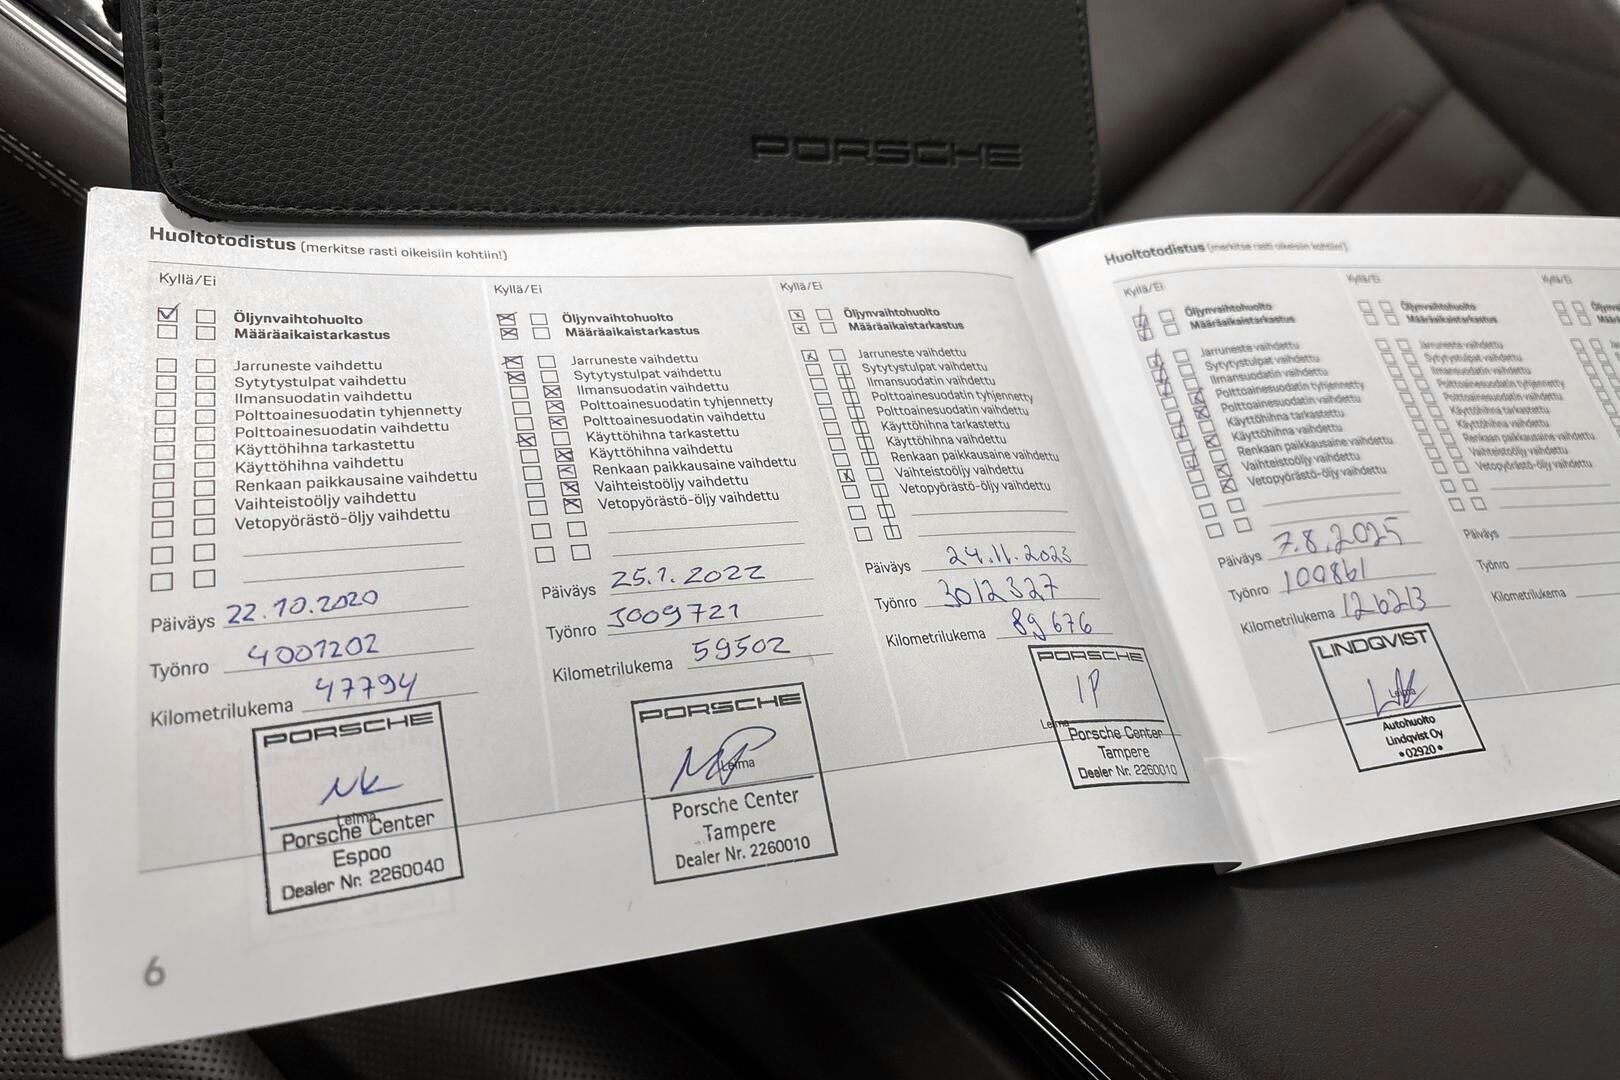 PORSCHE
Huoltotodistus (merkitse rasti oikeisiin kohtiin!)
Kyllä/Ei
Öljynvaihtohuolto
Määräaikaistarkastus
Jarruneste vaihdettu
Sytytystulpat vaihdettu
Ilmansuodatin vaihdettu
Polttoainesuodatin tyhjennetty
Polttoainesuodatin vaihdettu
Käyttöhihna tarkastettu
Käyttöhihna vaihdettu
Renkaan paikkausaine vaihdettu
Vaihteistoöljy vaihdettu
Vetopyörästö-öljy vaihdettu
Päiväys 22.10.2020
Työnro 4001202
Kilometrilukema 47794
PORSCHE
Leima
Porsche Center
Espoo
Dealer Nr. 2260040
6
Kyllä/Ei
Öljynvaihtohuolto
Määräaikaistarkastus
Jarruneste vaihdettu
Sytytystulpat vaihdettu
Ilmansuodatin vaihdettu
Polttoainesuodatin tyhjennetty
Polttoainesuodatin vaihdettu
Käyttöhihna tarkastettu
Käyttöhihna vaihdettu
Renkaan paikkausaine vaihdettu
Vaihteistoöljy vaihdettu
Vetopyörästö-öljy vaihdettu
Päiväys 25.1.2022
Työnro 3009721
Kilometrilukema 59502
PORSCHE
Leima
Porsche Center
Tampere
Dealer Nr. 2260010
Kyllä/Ei
Öljynvaihtohuolto
Määräaikaistarkastus
Jarruneste vaihdettu
Sytytystulpat vaihdettu
Ilmansuodatin vaihdettu
Polttoainesuodatin tyhjennetty
Polttoainesuodatin vaihdettu
Käyttöhihna tarkastettu
Käyttöhihna vaihdettu
Renkaan paikkausaine vaihdettu
Vaihteistoöljy vaihdettu
Vetopyörästö-öljy vaihdettu
Päiväys 24.11.2023
Työnro 3012327
Kilometrilukema 89676
PORSCHE
Leima
Porsche Center
Tampere
Dealer Nr. 2260010
Huoltotodistus (merkitse rasti oikeisiin kohtiin!)
Kyllä/Ei
Öljynvaihtohuolto
Määräaikaistarkastus
Jarruneste vaihdettu
Sytytystulpat vaihdettu
Ilmansuodatin vaihdettu
Polttoainesuodatin tyhjennetty
Polttoainesuodatin vaihdettu
Käyttöhihna tarkastettu
Käyttöhihna vaihdettu
Renkaan paikkausaine vaihdettu
Vaihteistoöljy vaihdettu
Vetopyörästö-öljy vaihdettu
Päiväys 7.8.2025
Työnro 100861
Kilometrilukema 126213
LINDQVIST
Leima
Autohuolto
Lindqvist Oy
•02920•
Kyllä/Ei
Öljynvaihtohuolto
Määräaikaistarkastus
Jarruneste vaihdettu
Sytytystulpat vaihdettu
Ilmansuodatin vaihdettu
Polttoainesuodatin tyhjennetty
Polttoainesuodatin vaihdettu
Käyttöhihna tarkastettu
Käyttöhihna vaihdettu
Renkaan paikkausaine vaihdettu
Vaihteistoöljy vaihdettu
Vetopyörästö-öljy vaihdettu
Päiväys
Työnro
Kilometrilukema
Kyllä/Ei